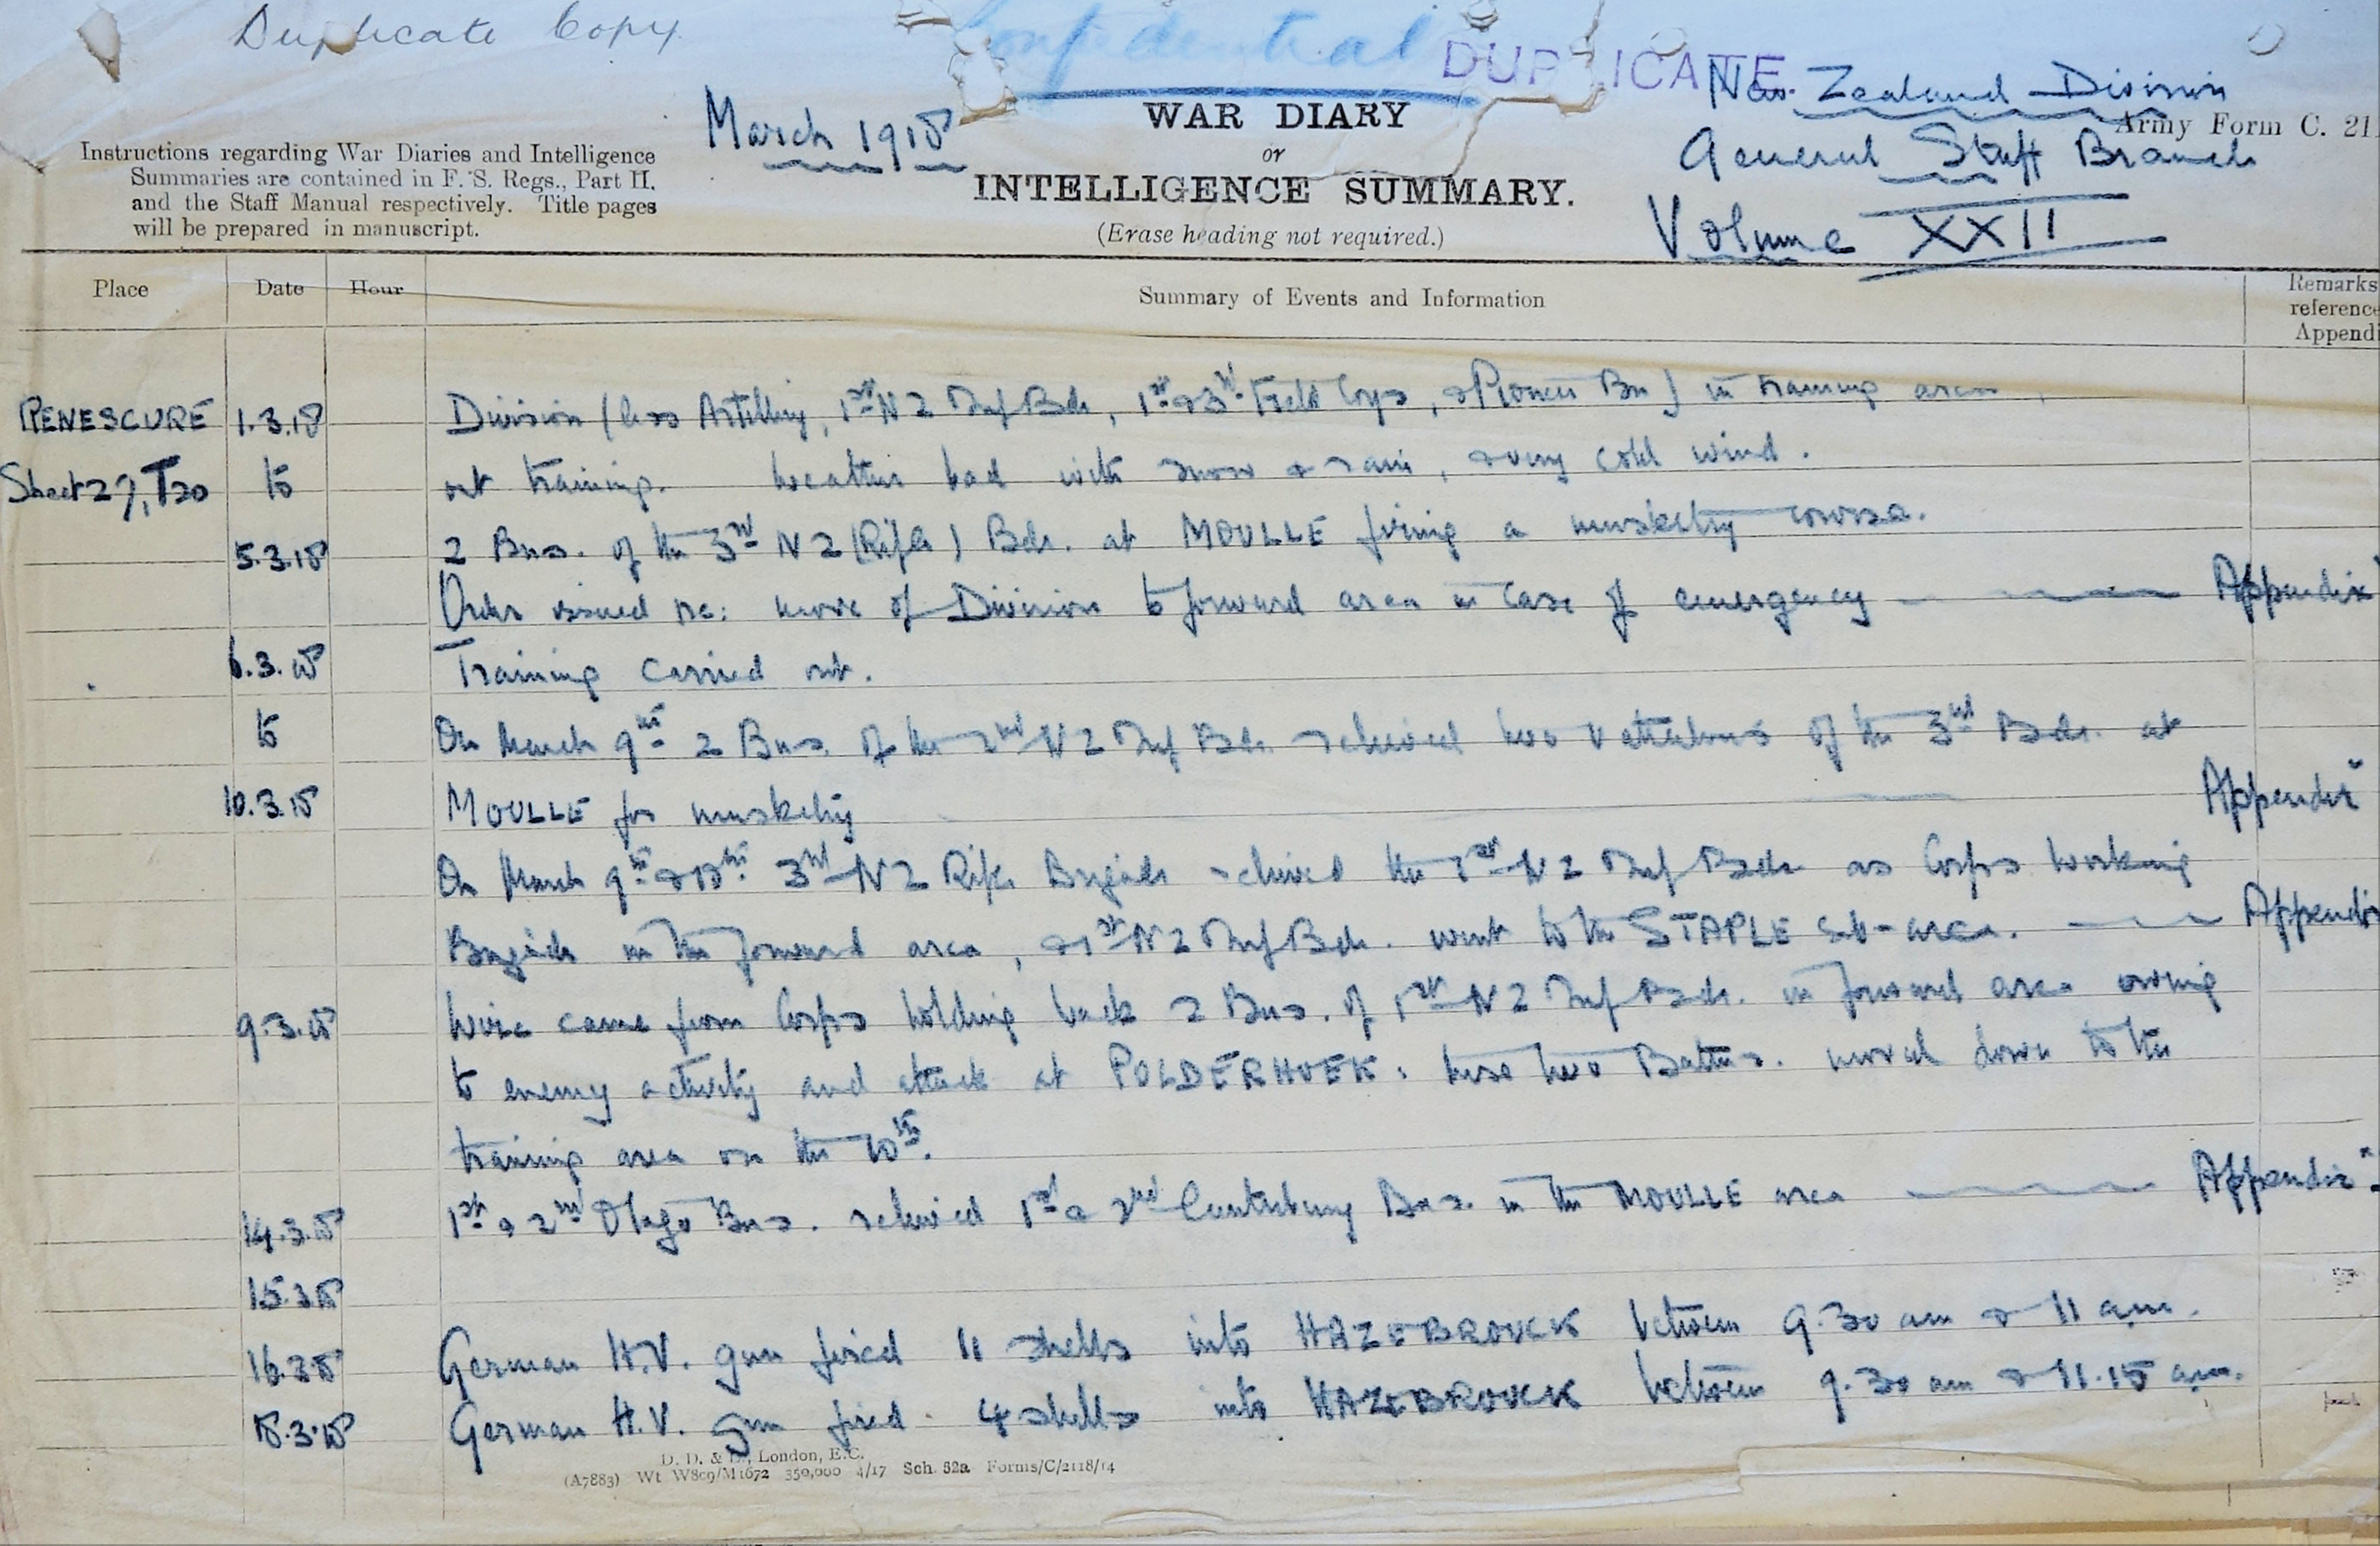 Duplicate Copy.
Confidential
DUPLICATE.
New Zealand Division
March 1918
WAR DIARY
Army Form C. 21
or
General Staff Branch
INTELLIGENCE SUMMARY.
Volume XXII
(Erase heading not required.)
Instructions regarding War Diaries and Intelligence
Summaries are contained in F. S. Regs., Part II.
and the Staff Manual respectively. Title pages
will be prepared in manuscript.
Place Date Hour Summary of Events and Information Remarks
reference
Appendi
RENESCURE 1.3.18 Division (less Artillery, 1st N Z Inf Bde, 1st & 3rd Field Coys, & Pioneer Bn) in training area
Sheet 27, T20 to out training. Weather bad with snow & rain, & very cold wind.
5.3.18 2 Bns. of the 3rd N Z (Rifle) Bde. at MOULLE firing a musketry course.
Order issued re: move of Division to forward area in case of emergency Appendix
6.3.18 Training carried out.
to On March 9th 2 Bns. of the 2nd N Z Inf Bde. relieved two battalions of the 3rd Bde. at
10.3.18 MOULLE for musketry Appendix
On March 9th & 10th 3rd N Z Rifle Brigade relieved the 1st N Z Inf Bde as Corps Working
Brigade in the forward area, & 1st N Z Inf Bde. went to the STAPLE sub-area. Appendi
9.3.18 Wire came from Corps holding back 2 Bns. of 1st N Z Inf Bde. in forward area owing
to enemy activity and attack at POLDERHOEK. These two Battns. moved down to the
training area on the 10th.
14.3.18 1st & 2nd Otago Bns. relieved 1st & 2nd Canterbury Bns. in the MOULLE area Appendix
15.3.18
16.3.18 German H.V. gun fired 11 shells into HAZEBROUCK between 9.30 am & 11 a.m.
18.3.18 German H.V. gun fired 4 shells into HAZEBROUCK between 9.30 am & 11.15 a.m.
D. D. & L., London, E.C.
(A7883) Wt W809/M1672 350,000 4/17 Sch. 52a Forms/C/2118/14